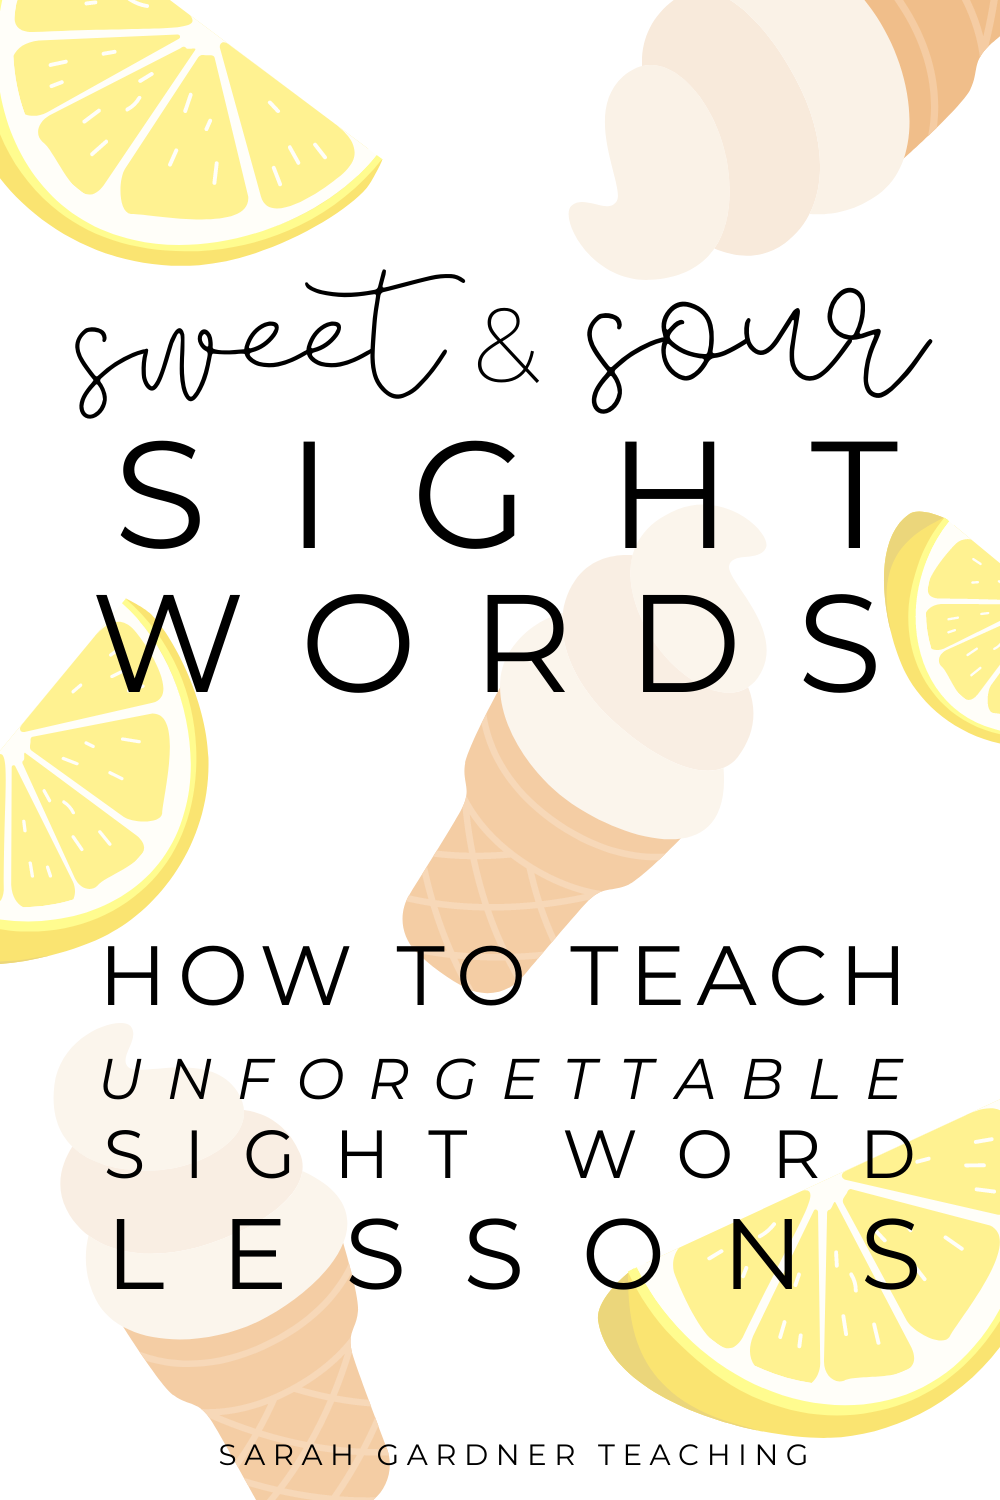 sweet & sour
SIGHT
WORDS
HOW TO TEACH
UNFORGETTABLE
SIGHT WORD
LESSONS
SARAH GARDNER TEACHING